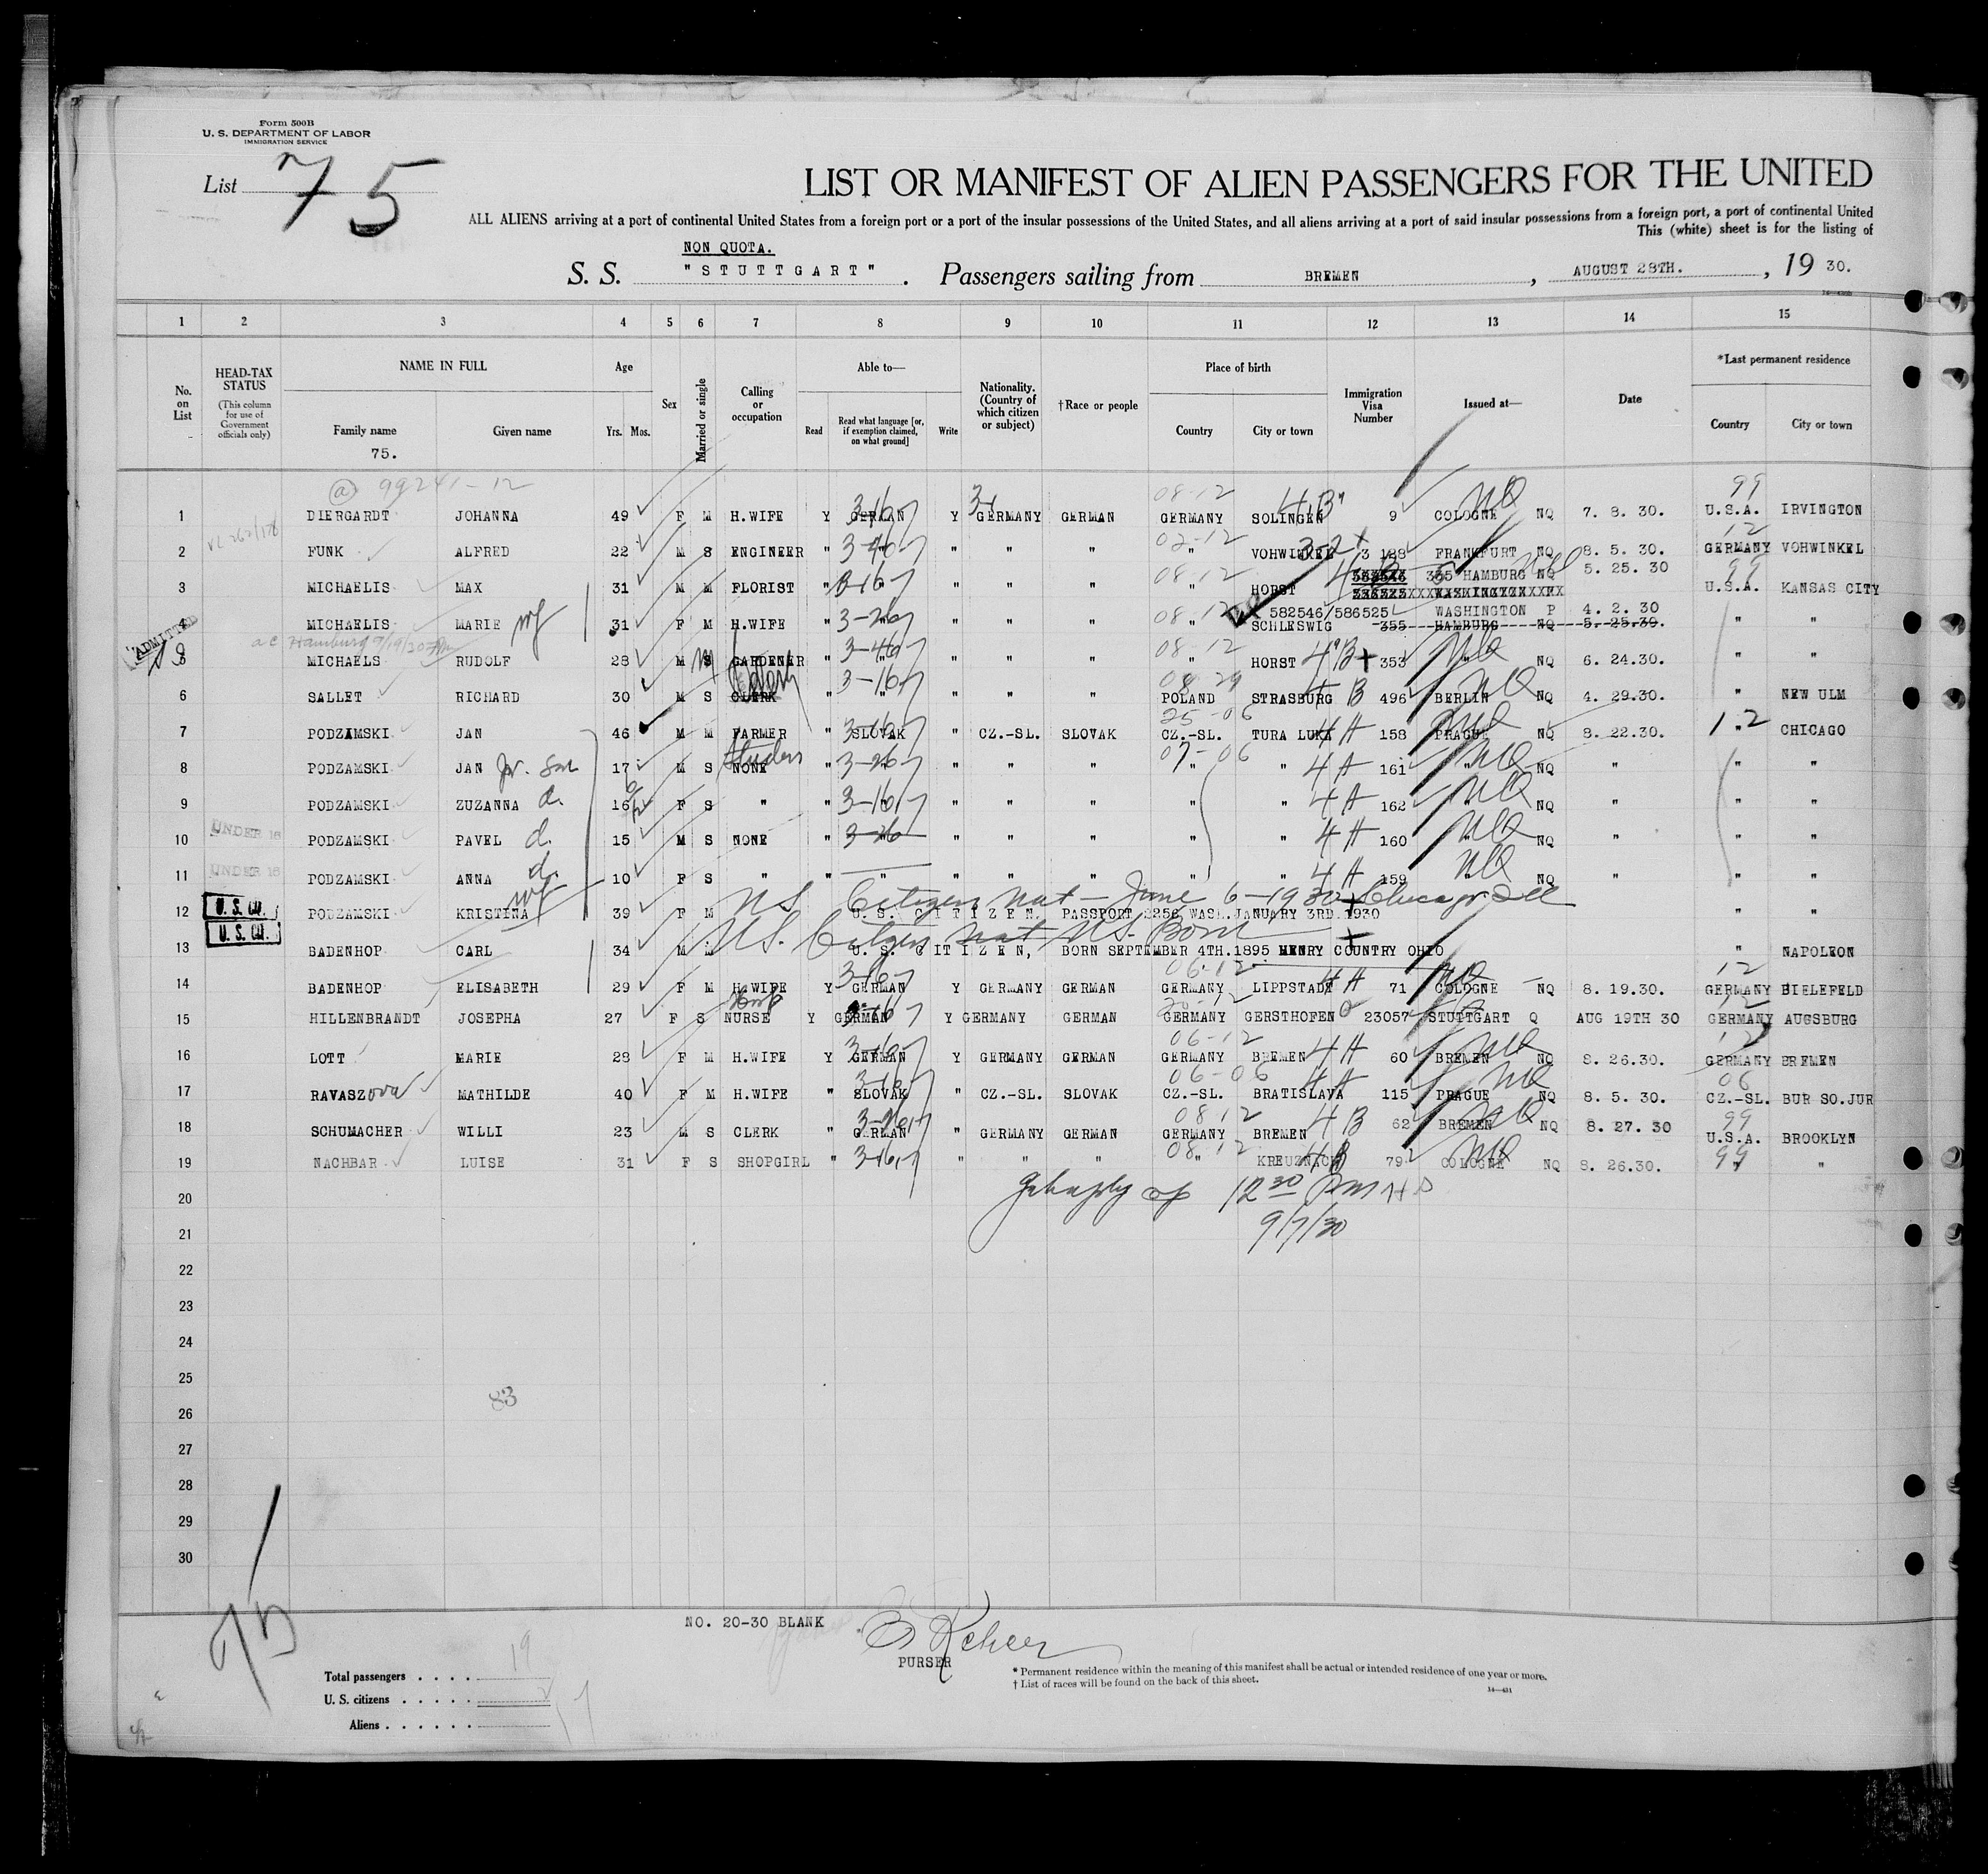 Form 500B
U. S. DEPARTMENT OF LABOR
IMMIGRATION SERVICE
List 75
LIST OR MANIFEST OF ALIEN PASSENGERS FOR THE UNITED
ALL ALIENS arriving at a port of continental United States from a foreign port or a port of the insular possessions of the United States, and all aliens arriving at a port of said insular possessions from a foreign port, a port of continental United
This (white) sheet is for the listing of
NON QUOTA.
S. S. "STUTTGART". Passengers sailing from BREMEN, AUGUST 28TH., 19 30.
1 2 3 4 5 6 7 8 9 10 11 12 13 14 15
No. on List
HEAD-TAX STATUS (This column for use of Government officials only)
NAME IN FULL
Family name Given name
75.
Age
Yrs. Mos.
Sex
Married or single
Calling or occupation
Able to—
Read
Read what language [or, if exemption claimed, on what ground]
Write
Nationality. (Country of which citizen or subject)
†Race or people
Place of birth
Country City or town
Immigration Visa Number
Issued at—
Date
*Last permanent residence
Country City or town
(a) 99241-12
08-12 4B 99
1 DIERGARDT JOHANNA 49 F M H.WIFE Y GERMAN Y GERMANY GERMAN GERMANY SOLINGEN 9 COLOGNE NQ 7. 8. 30. U.S.A. IRVINGTON
02-12 12
2 FUNK ALFRED 22 M S ENGINEER " " " " " " VOHWINKEL 3 188 FRANKFURT NQ 8. 5. 30. GERMANY VOHWINKEL
355 HAMBURG NQ 5. 25. 30
08-12 99
3 MICHAELIS MAX 31 M M FLORIST " " " " " " HORST U.S.A. KANSAS CITY
582546/586525 WASHINGTON P 4. 2. 30
4 MICHAELIS MARIE wf 31 F M H.WIFE " " " " " " SCHLESWIG 355 HAMBURG NQ 5.25.30. " "
ADMITTED
08-12
5 MICHAELS RUDOLF 28 M S GARDENER " " " " " " HORST 4B 353 " NQ 6. 24.30. " "
6 SALLET RICHARD 30 M S CLERK " " " " " POLAND STRASBURG 4 B 496 BERLIN NQ 4. 29.30. " NEW ULM
25-06
7 PODZAMSKI JAN 46 M M FARMER " SLOVAK " CZ.-SL. SLOVAK CZ.-SL. TURA LUKA 4A 158 PRAGUE NQ 8. 22.30. " CHICAGO
07-06
8 PODZAMSKI JAN Jr. son 17 M S NONE " " " " " " " 4A 161 " NQ " " "
9 PODZAMSKI ZUZANNA d. 16 F S " " " " " " " " 4A 162 " NQ " " "
UNDER 16
10 PODZAMSKI PAVEL d. 15 M S NONE " " " " " " " 4A 160 " NQ " " "
UNDER 16
11 PODZAMSKI ANNA d. 10 F S " " " " " " " " 4A 159 " NQ " " "
US Citizen Nat - June 6-1930 Chicago Ill
12 PODZAMSKI KRISTINA wf 39 F M U. S. CITIZEN. PASSPORT 2256 WASH.JANUARY 3RD.1930 " "
U.S. Citizen Nat US. Born
13 BADENHOP CARL 34 M M U. S. CITIZEN, BORN SEPTEMBER 4TH.1895 HENRY COUNTRY OHIO " NAPOLEON
06-12 12
14 BADENHOP ELISABETH 29 F M H.WIFE Y GERMAN Y GERMANY GERMAN GERMANY LIPPSTADT 4A 71 COLOGNE NQ 8. 19.30. GERMANY BIELEFELD
15 HILLENBRANDT JOSEPHA 27 F S NURSE Y GERMAN Y GERMANY GERMAN GERMANY GERSTHOFEN 23057 STUTTGART Q AUG 19TH 30 GERMANY AUGSBURG
06-12
16 LOTT MARIE 28 F M H.WIFE Y GERMAN Y GERMANY GERMAN GERMANY BREMEN 4A 60 BREMEN NQ 8. 26.30. GERMANY BREMEN
06-06 06
17 RAVASZova MATHILDE 40 F M H.WIFE " SLOVAK " CZ.-SL. SLOVAK CZ.-SL. BRATISLAVA 4A 115 PRAGUE NQ 8. 5. 30. CZ.-SL. BUR SO.JUR
08-12 99
18 SCHUMACHER WILLI 23 M S CLERK " GERMAN " GERMANY GERMAN GERMANY BREMEN 4B 62 BREMEN NQ 8. 27. 30 U.S.A. BROOKLYN
08-12 99
19 NACHBAR LUISE 31 F S SHOPGIRL " " " " " " KREUZNACH 4B 79 COLOGNE NQ 8. 26.30. " "
20 12 30 PM
21 9/7/30
22
23
24
25
26 83
27
28
29
30
NO. 20-30 BLANK
PURSER
Total passengers 19
U. S. citizens
Aliens
* Permanent residence within the meaning of this manifest shall be actual or intended residence of one year or more.
† List of races will be found on the back of this sheet.